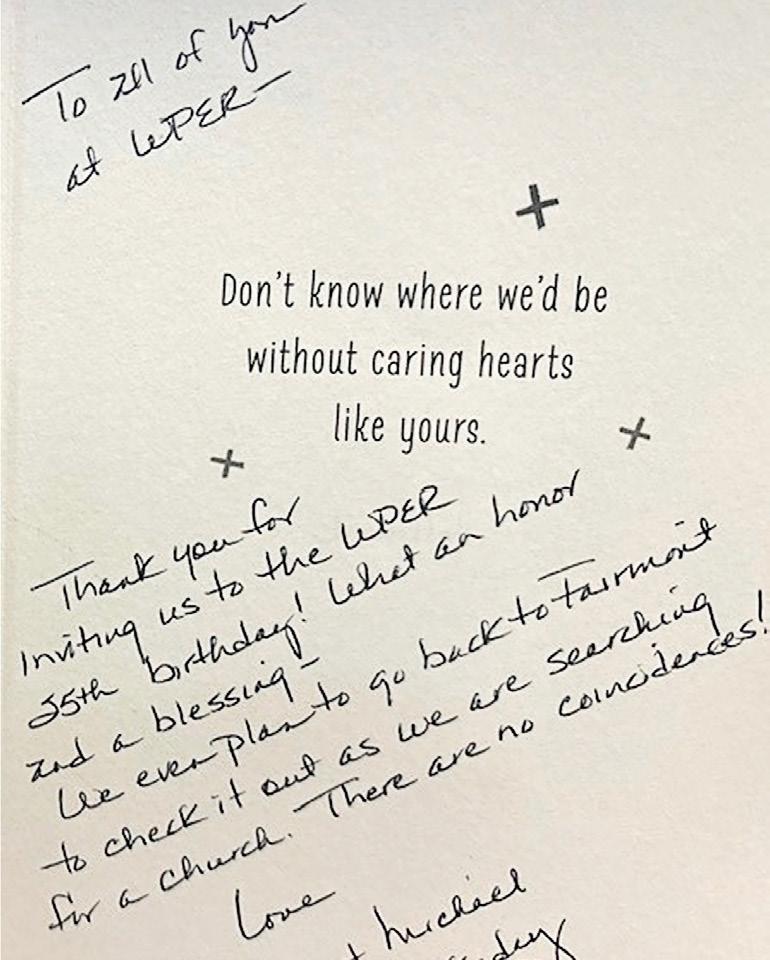 To all of you
at WPER—
Don't know where we'd be
without caring hearts
like yours.
Thank you for
inviting us to the WPER
25th birthday! What an honor
and a blessing—
We even plan to go back to Fairmont
to check it out as we are searching
for a church. There are no coincidences!
Love
Michael